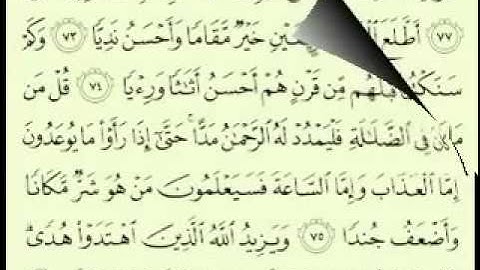 ٧٧ أَطَّلَعَ خَيْرٌ مَّقَامًا وَأَحْسَنُ نَدِيًّا ٧٣ وَكَمْ
مِّن قَرْنٍ هُمْ أَحْسَنُ أَثَٰثًا وَرِءْيًا ٧٤ قُلْ مَن
فِى ٱلضَّلَٰلَةِ فَلْيَمْدُدْ لَهُ ٱلرَّحْمَٰنُ مَدًّا ۚ حَتَّىٰٓ إِذَا رَأَوْا۟ مَا يُوعَدُونَ
إِمَّا ٱلْعَذَابَ وَإِمَّا ٱلسَّاعَةَ فَسَيَعْلَمُونَ مَنْ هُوَ شَرٌّ مَّكَانًا
وَأَضْعَفُ جُندًا ٧٥ وَيَزِيدُ ٱللَّهُ ٱلَّذِينَ ٱهْتَدَوْا۟ هُدًى ۗ